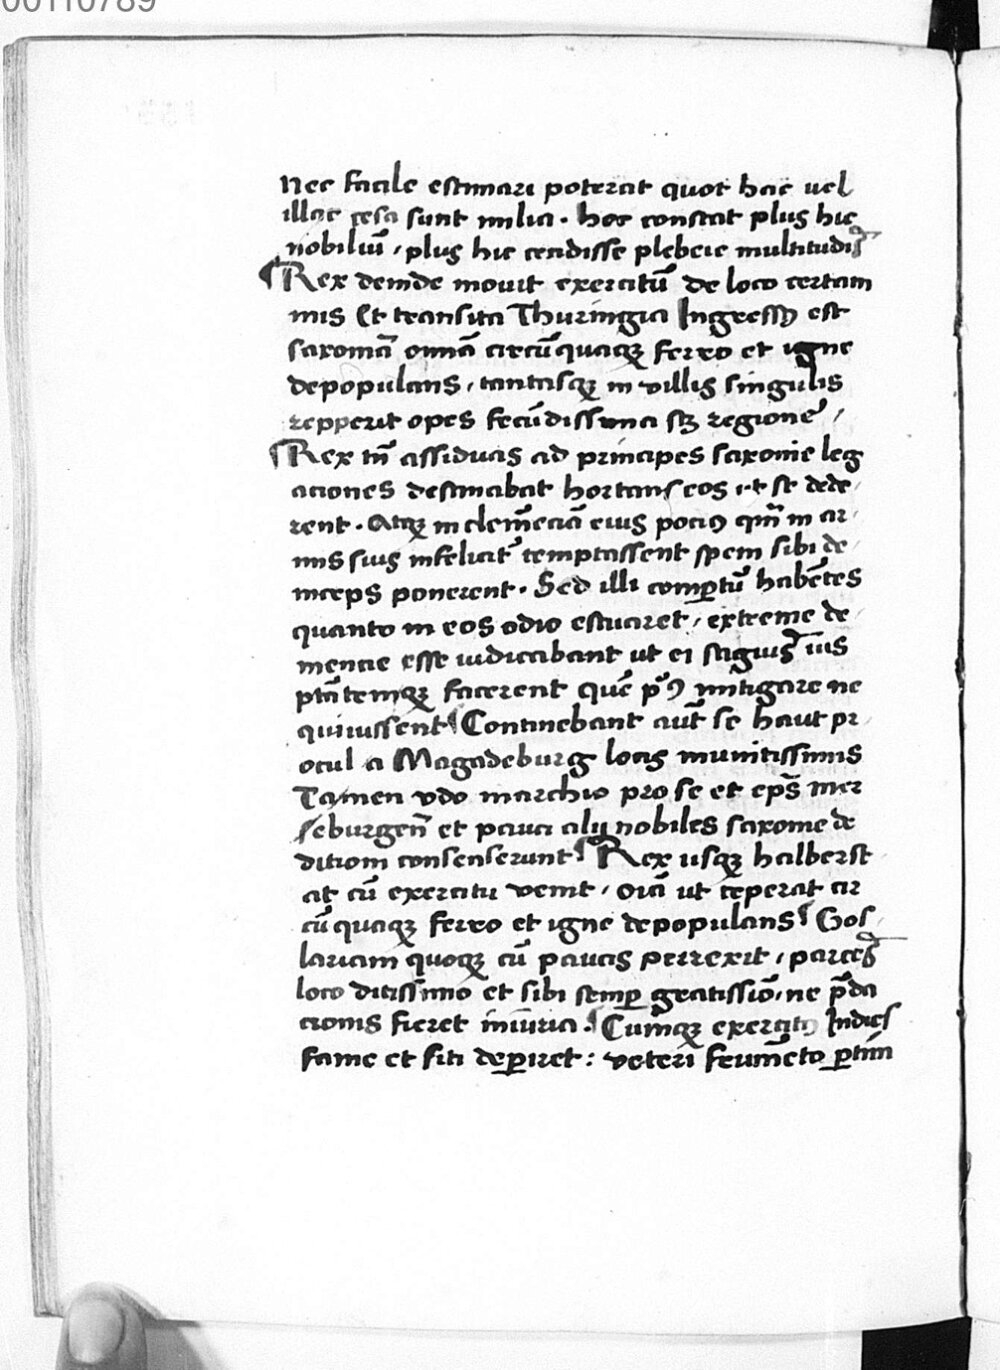 00110789
nec facile estimari poterat quot hac vel
illac cesa sunt milia. hoc constat plus hic
nobiliū, plus hic cecidisse plebeie multitudīs
Rex deinde movit exercitū de loco certam
inis Et transita Thuringia Ingressꝰ est
saxoniā omnē circūquaqꝫ ferro et igne
depopulans, tantasqꝫ in villis singulis
repperit opes fecūdissima sꝫ regione,
Rex tn̄ assiduas ad principes saxonie leg
aciones destinabat hortans eos ut se dede
rent. Atqꝫ in clemēciā eius pociꝰ qm̄ in ar
mis suis infelicit̄ temptassent spem sibi de
inceps ponerent. Sed illi compertū habētes
quanto in eos odio estuaret, extreme de
mencie esse iudicabant ut ei
facerent quē mitigare ne
quiuissent Continebant aut̄ se haut pr
ocul a Magadeburg locis munitissimis
Tamen vdo marchio pro se et ep̄s mer
seburgen̄ et pauci alij nobiles saxonie de
ditiom consenserunt Rex usqꝫ halberst
at cū exercitu venit, oīa ut ceperat cir
cū quaqꝫ ferro et igne depopulans Gos
lariam quoqꝫ cū paucis perrexit,
loco ditissimo et sibi semꝑ gratissiō, ne p̄da
cionis fieret iniuria. Cumqꝫ exercitꝰ Indies
fame et siti deꝑiret: veteri feumēto ꝑtim